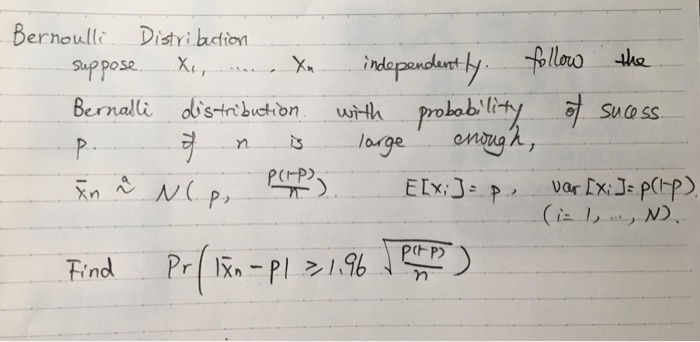 Bernoulli Distribution
suppose X₁, ..... . Xn independently. follow the
Bernalli distribution. with probability of sucess
p. If n is large enough,
x̄n ~̇ N( p, p(1-p)/n ). E[Xi]= p, var[Xi]= p(1-p).
(i= 1, ..., N).
Find Pr( |x̄n - p| ⩾ 1.96 √(p(1-p)/n) )